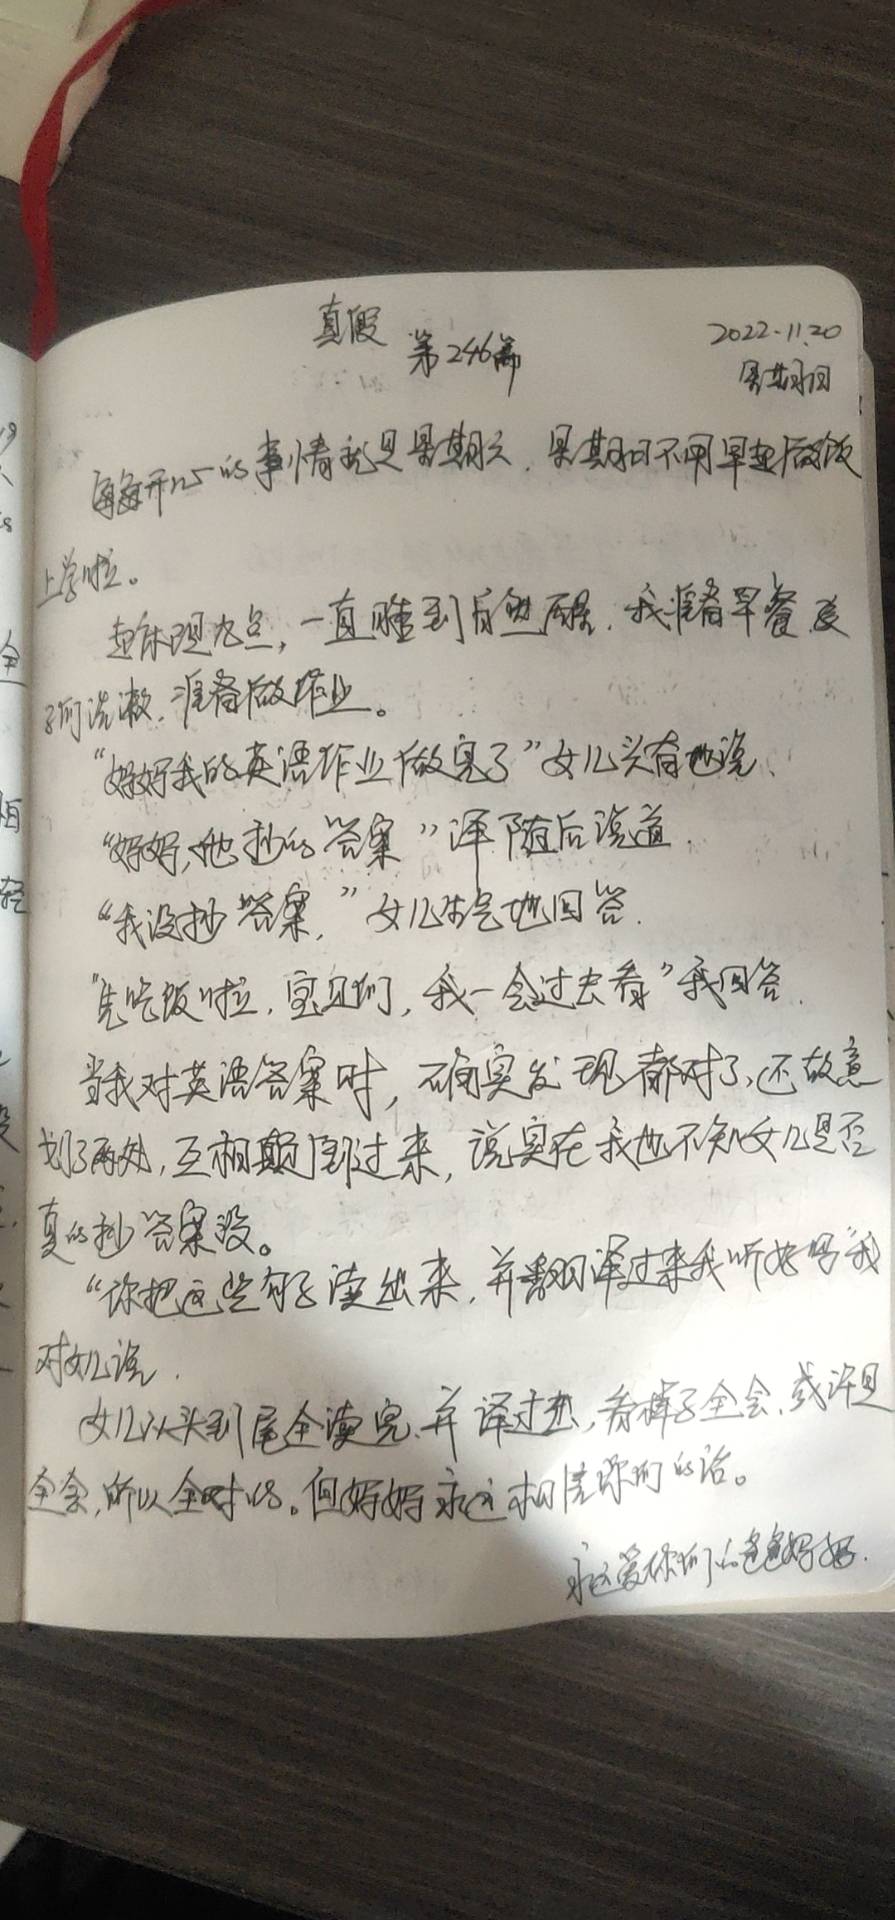 真假
第246篇
2022.11.20
星期日
每每开心的事情就是星期天，星期日不用早起做饭
上学啦。
起床现九点，一直睡到自然醒，我准备早餐，孩
子们洗漱，准备做作业。
“妈妈我的英语作业做完了”女儿头有地说、
“妈妈，她抄的答案”泽随后说道.
“我没抄答案，”女儿生气地回答.
“先吃饭啦，宝贝们，我一会过去看”我回答.
当我对英语答案时，确实发现都对了，还故意
划了两处，互相颠倒过来，说实在我也不知女儿是否
真的抄答案没。
“你把这些句子读出来，并翻译过来我听好吗”我
对女儿说.
女儿从头到尾全读完，并译过来，看样子全会，或许是
全会，所以全对的。但妈妈永远相信你们的话。
永远爱你们的爸爸妈妈.